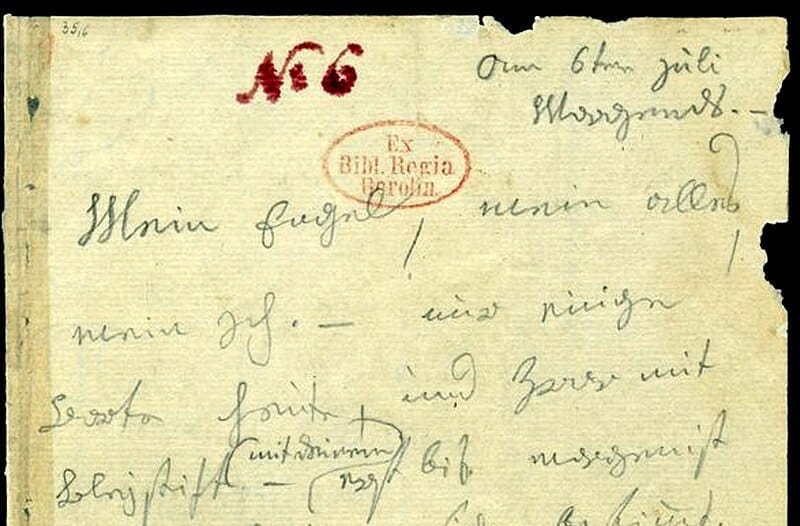 35,6
№ 6
am 6ten juli
Morgends. –
Ex
Bibl. Regia
Berolin.
Mein Engel, mein alles,
mein Ich. – nur einige
Worte heute, und zwar mit
Bleystift – (mit deinem)
erst bis morgen ist